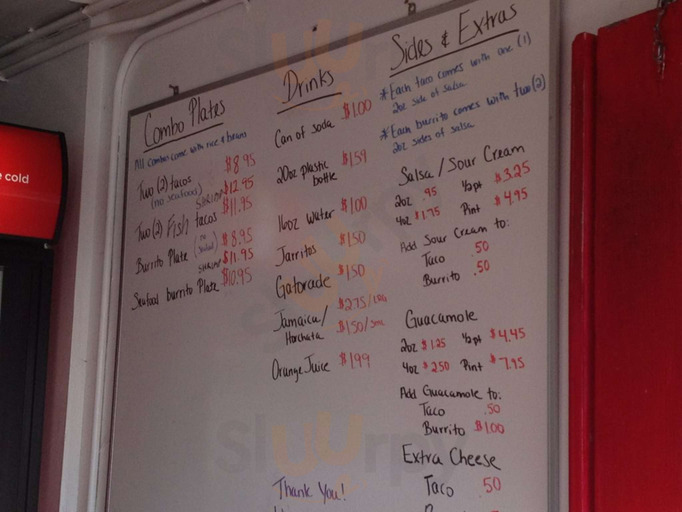 Combo Plates
All combos come with rice & beans
Two (2) tacos $8.95
(no seafood) SHRIMP $12.95
Two (2) Fish tacos $11.95
Burrito Plate (no seafood) $8.95
SHRIMP $11.95
Seafood burrito Plate $10.95
Drinks
Can of soda $1.00
20oz plastic bottle $1.59
16oz water $1.00
Jarritos $1.50
Gatorade $1.50
Jamaica/ $2.75/LRG
Horchata $1.50/sm
Orange Juice $1.99
Thank You!
Sides & Extras
*Each taco comes with one (1)
2oz side of salsa
*Each burrito comes with two (2)
2oz sides of salsa
Salsa / Sour Cream
2oz .95 ½pt $3.25
4oz $1.75 Pint $4.95
Add Sour Cream to:
Taco .50
Burrito .50
Guacamole
2oz $1.25 ½pt $4.45
4oz $2.50 Pint $7.95
Add Guacamole to:
Taco .50
Burrito $1.00
Extra Cheese
Taco .50
cold
sluurpy